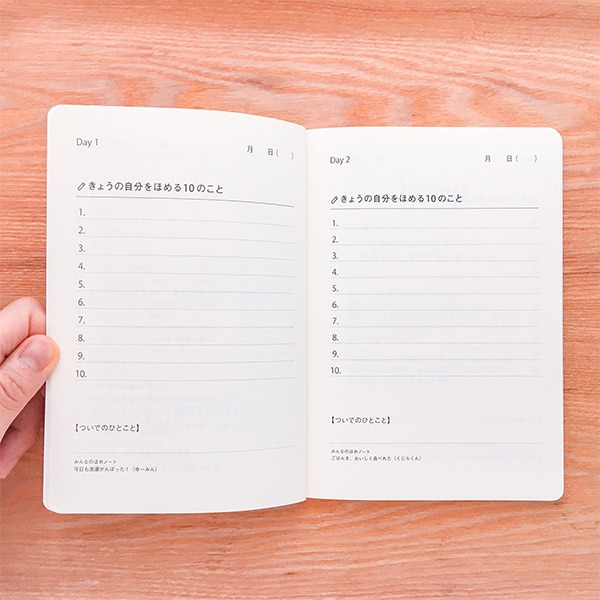 Day 1
月 日( )
きょうの自分をほめる10のこと
1.
2.
3.
4.
5.
6.
7.
8.
9.
10.
【ついでのひとこと】
みんなのほめノート
今日も洗濯がんばった！（ゆーみん）
Day 2
月 日( )
きょうの自分をほめる10のこと
1.
2.
3.
4.
5.
6.
7.
8.
9.
10.
【ついでのひとこと】
みんなのほめノート
ごはんを、おいしく食べれた（くじらくん）